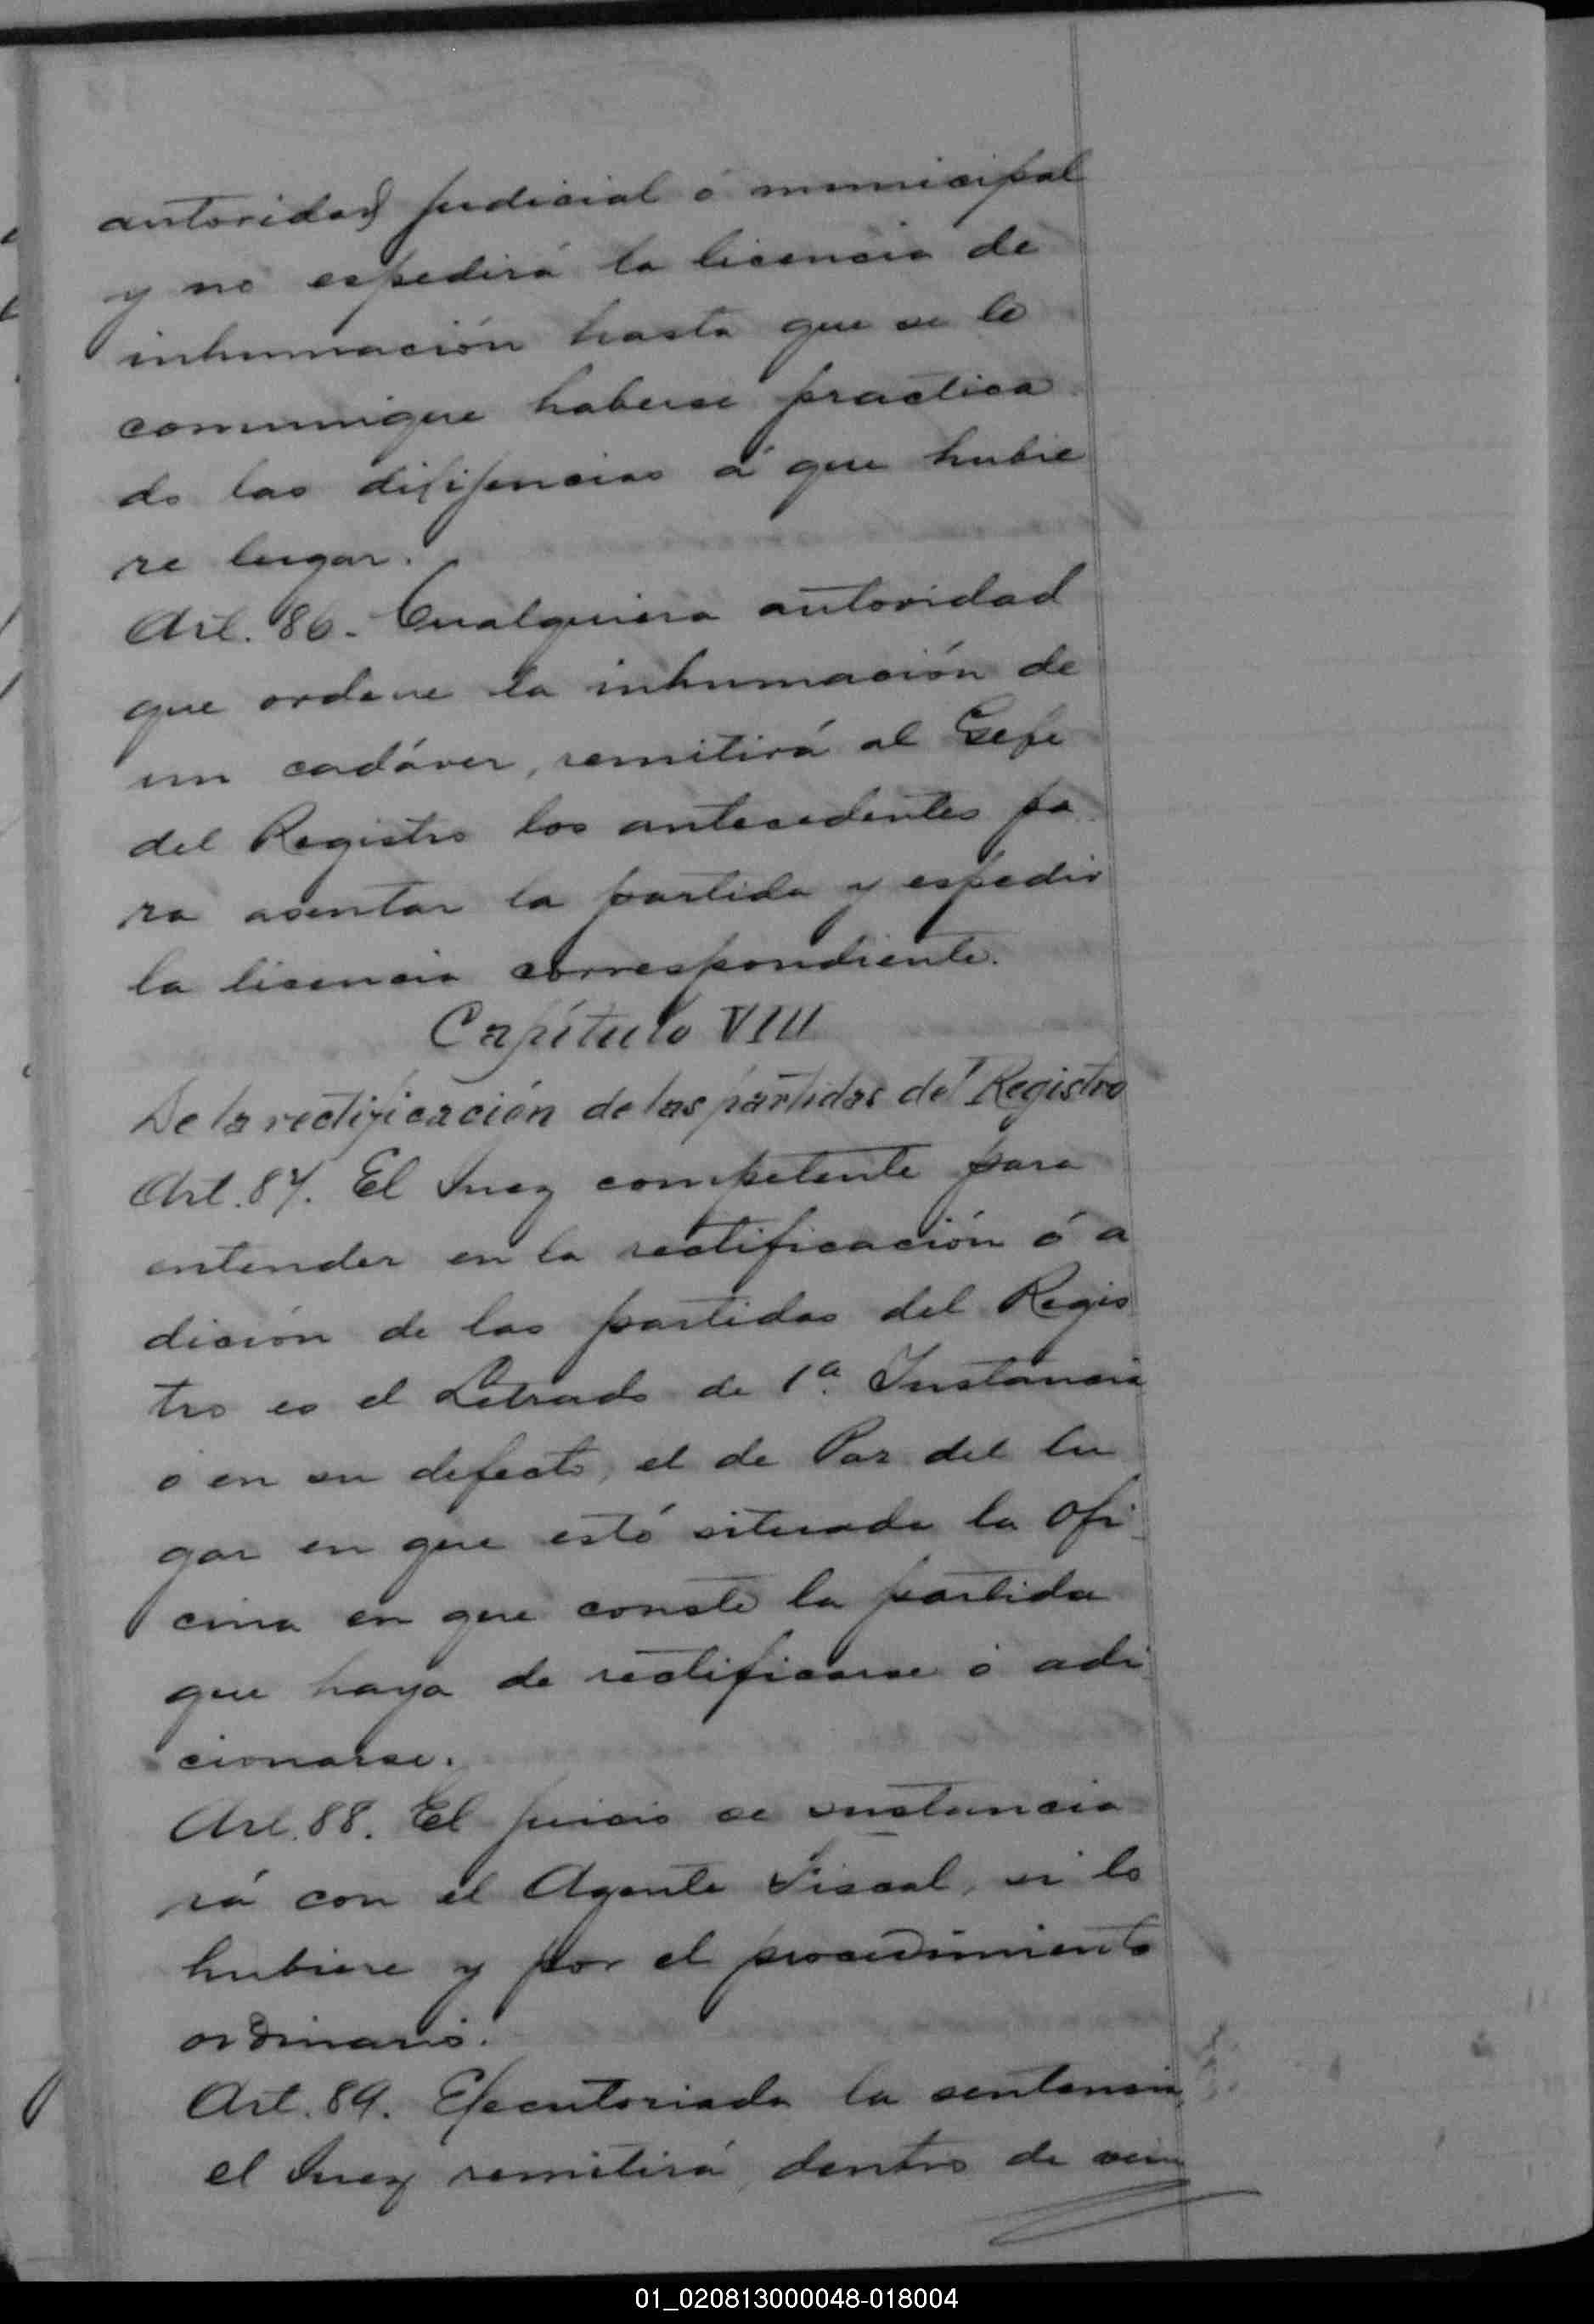 autoridad judicial ó municipal
y no espedirá la licencia de
inhumación hasta que se le
comunique haberse practica
do las diligencias á que hubie
re lugar.
Art. 86. Cualquiera autoridad
que ordene la inhumación de
un cadáver, remitirá al Gefe
del Registro los antecedentes pa
ra asentar la partida y espedir
la licencia correspondiente.
Capítulo VIII
De la rectificación de las partidas del Registro
Art. 87. El Juez competente para
entender en la rectificación ó a
dición de las partidas del Regis
tro es el Letrado de 1ª Instancia
ó en su defecto, el de Paz del lu
gar en que esté situada la ofi
cina en que conste la partida
que haya de rectificarse ó adi
cionarse.
Art. 88. El juicio se sustancia
rá con el Agente Fiscal, si lo
hubiere y por el procedimiento
ordinario.
Art. 89. Ejecutoriada la sentencia,
el Juez remitirá, dentro de vein
01_020813000048-018004